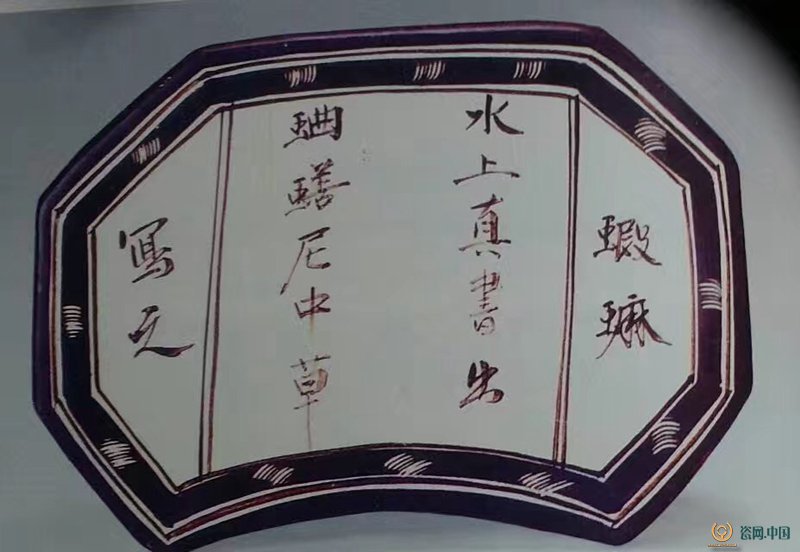 蝦䗫
水上真書出
蛐蟮尼中草
寫之
瓷网.中国